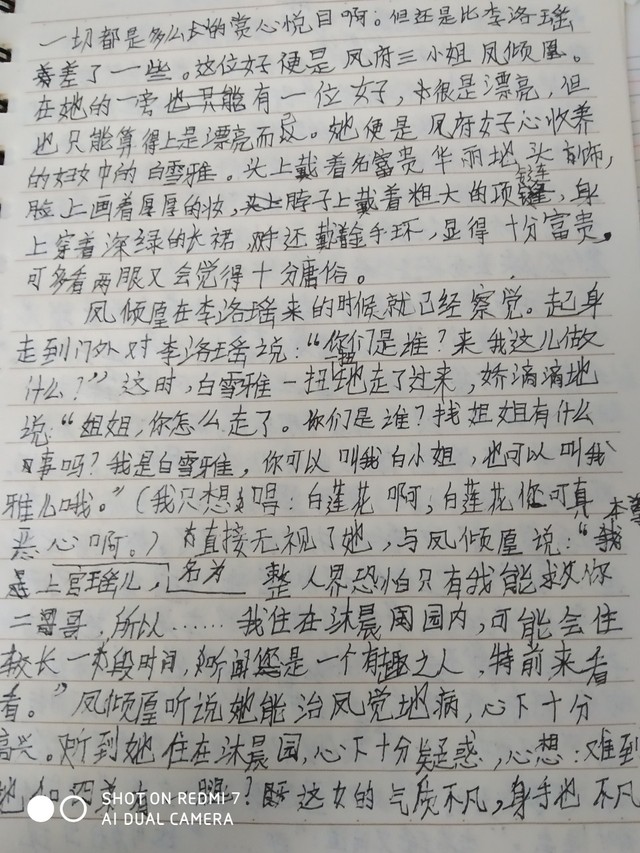 一切都是多么的赏心悦目啊。但还是比李洛瑶
差了一些。这位好便是凤府三小姐凤倾凰。
在她的一旁有一位女子,很是漂亮,但
也只能算得上是漂亮而已。她便是凤府好心收养
的妇女中的白雪雅。头上戴着名富贵华丽地头饰,
脸上画着厚厚的妆,脖子上戴着粗大的项链,身
上穿着深绿的长裙,还戴着金手环,显得十分富贵。
可多看两眼又会觉得十分庸俗。
凤倾凰在李洛瑶来的时候就已经察觉。起身
走到门外对李洛瑶说:“你们是谁?来我这儿做
什么?”这时,白雪雅一扭一扭地走了过来,娇滴滴地
说:“姐姐,你怎么走了。你们是谁?找姐姐有什么
事吗?我是白雪雅,你可以叫我白小姐,也可以叫我
雅儿哦。”(我只想唱:白莲花啊,白莲花你可真
恶心啊。)直接无视了她,与凤倾凰说:“本尊
名为上官瑶儿,整人界恐怕只有我能救你
二哥哥,所以……我住在沐晨园内,可能会住
较长一段时间,听闻您是一个有趣之人,特前来看
看。”凤倾凰听说她能治凤觉地病,心下十分
高兴。听到她住在沐晨园,心下十分疑惑,心想:难到
这女的气质不凡,身手也不凡
SHOT ON REDMI 7
AI DUAL CAMERA